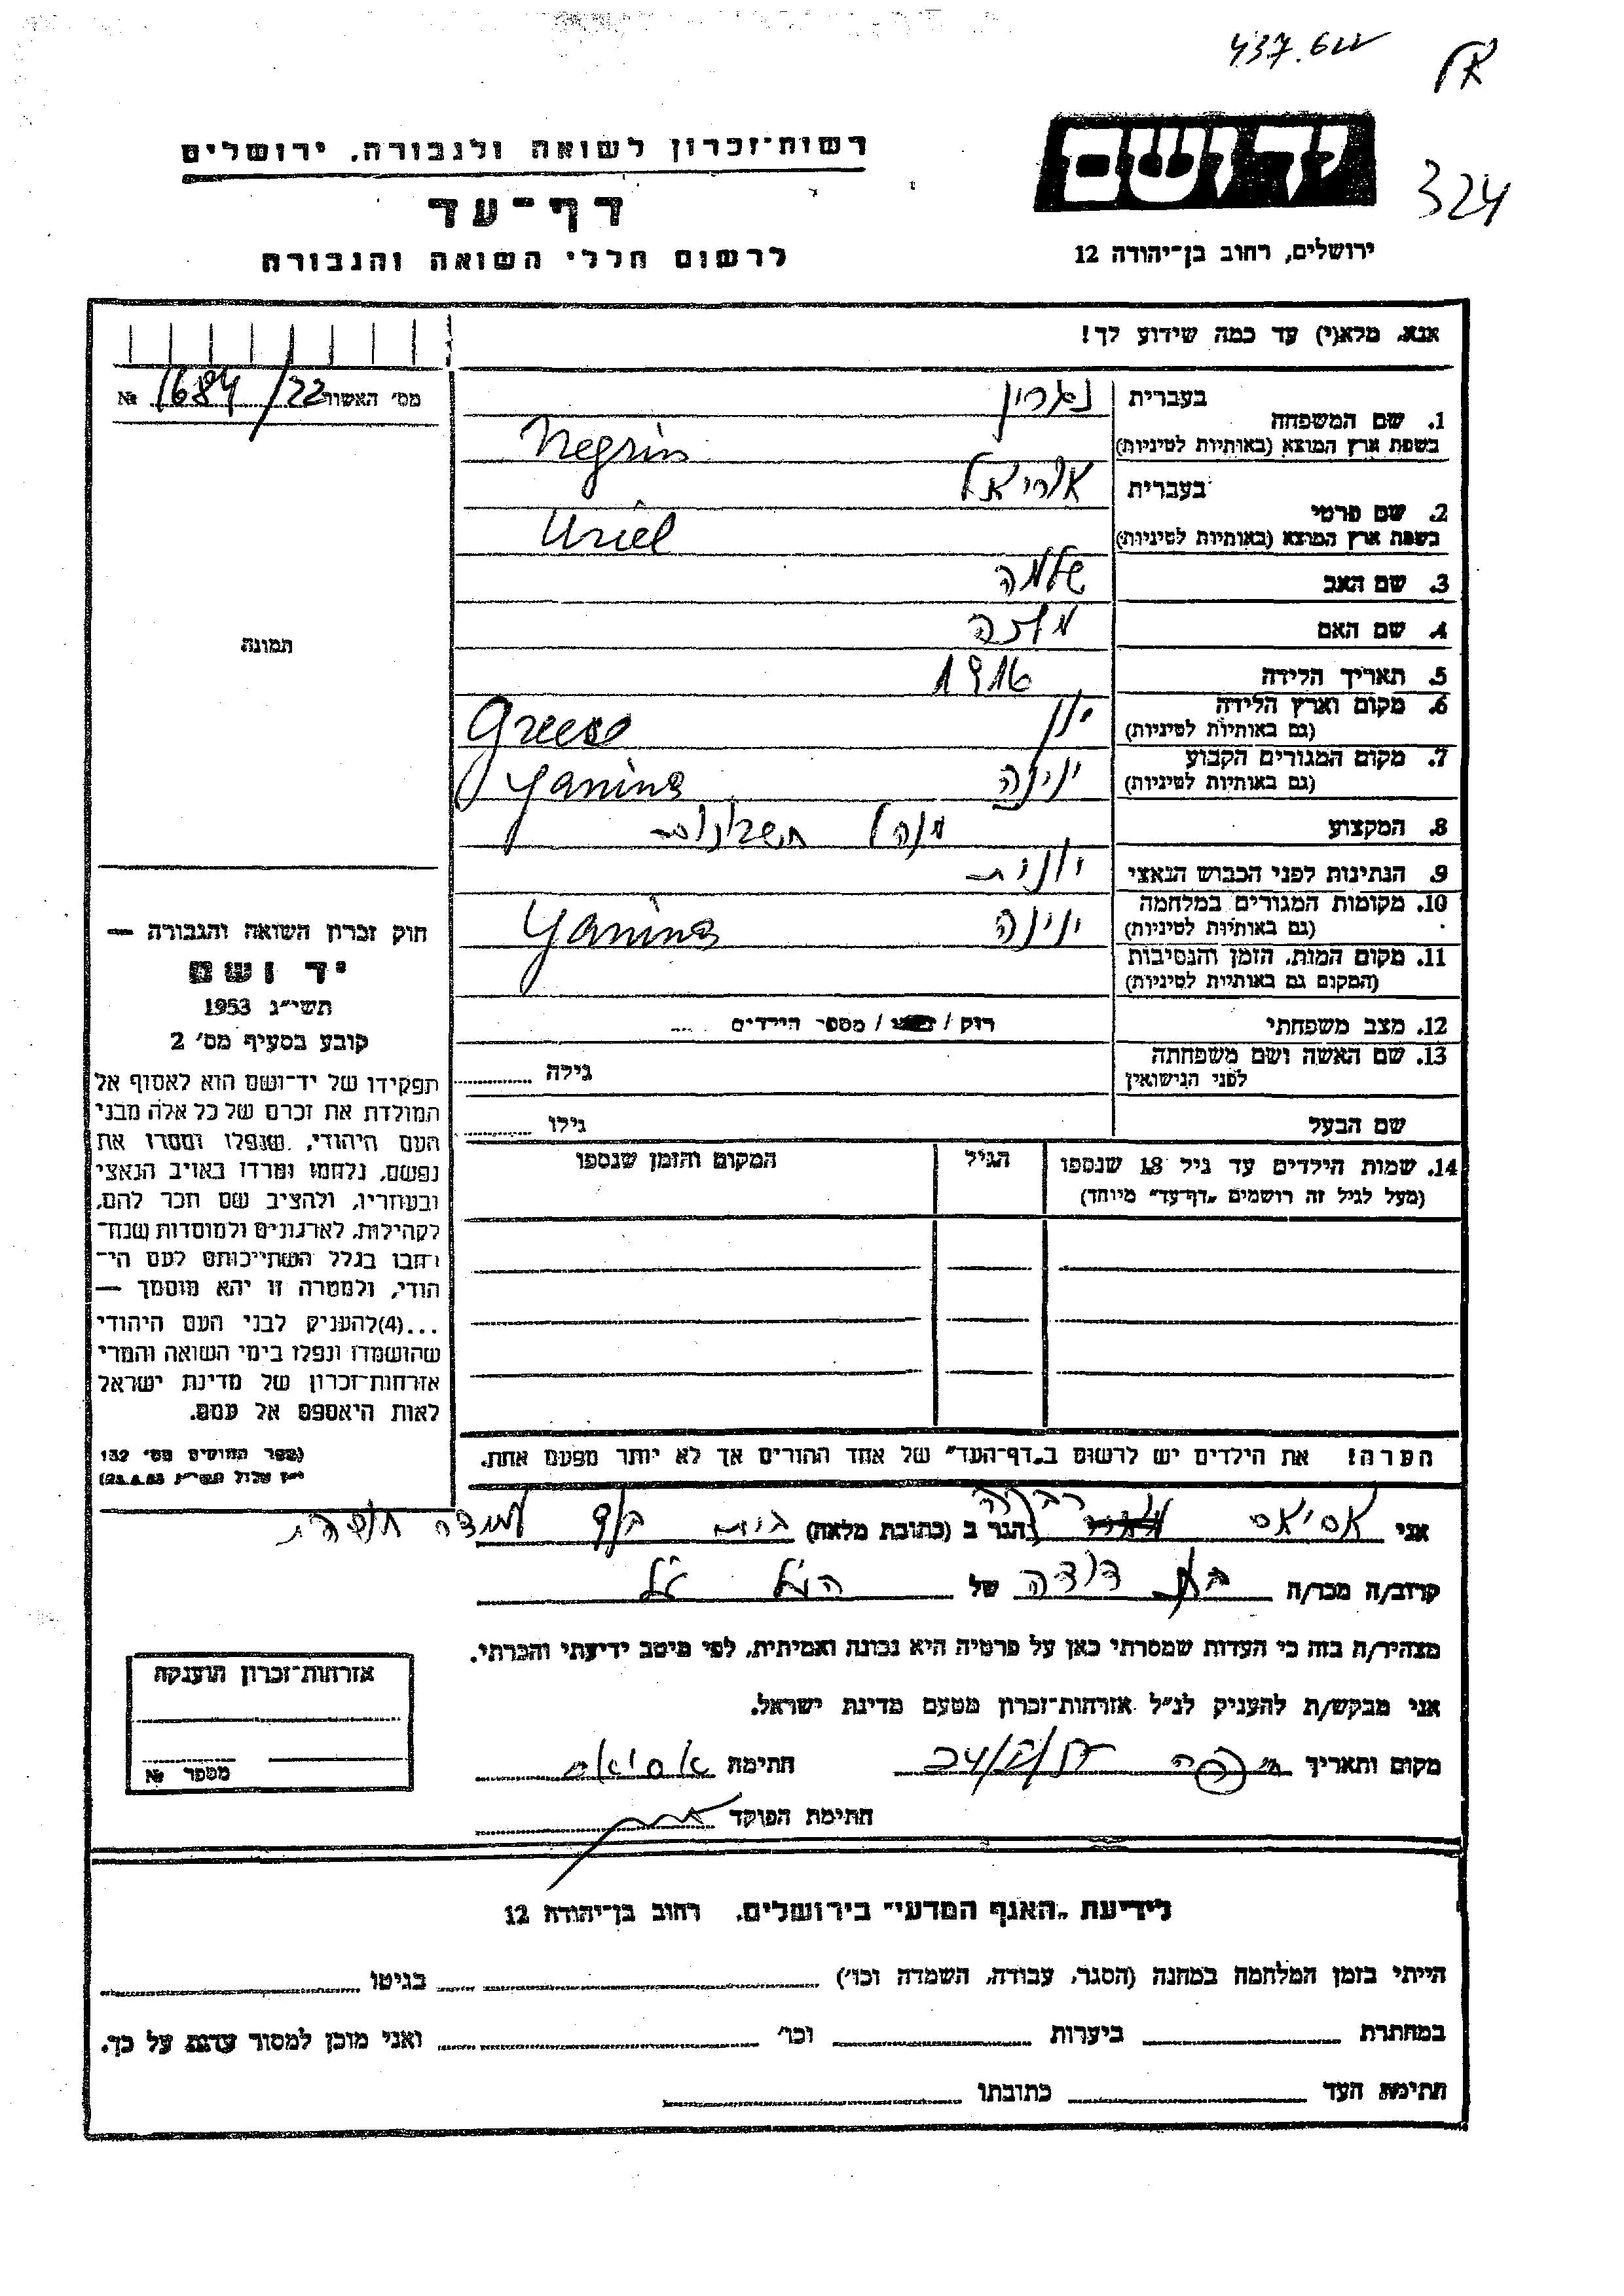 437.6
324
יד ושם
ירושלים, רחוב בן־יהודה 12
רשות־זכרון לשואה ולגבורה, ירושלים
דף־עד
לרשום חללי השואה והגבורה
אנא, מלא(י) עד כמה שידוע לך!
מס׳ האשור 1684/22 №
1. שם המשפחה
בעברית נגרין
בשפת ארץ המוצא (באותיות לטיניות) Negrin
2. שם פרטי
בעברית אוריאל
בשפת ארץ המוצא (באותיות לטיניות) Uriel
3. שם האב שלמה
4. שם האם
5. תאריך הלידה 1916
6. מקום וארץ הלידה יון
(גם באותיות לטיניות) Greece
7. מקום המגורים הקבוע ינינה
(גם באותיות לטיניות) Yanina
8. המקצוע מנהל חשבונות
9. הנתינות לפני הכבוש הנאצי יונית
10. מקומות המגורים במלחמה ינינה
(גם באותיות לטיניות) Yanina
11. מקום המות, הזמן והנסיבות
(המקום גם באותיות לטיניות)
12. מצב משפחתי רווק / / מספר הילדים
13. שם האשה ושם משפחתה
לפני הנישואין גילה
שם הבעל גילו
14. שמות הילדים עד גיל 18 שנספו הגיל המקום והזמן שנספו
(מעל לגיל זה רושמים „דף־עד״ מיוחד)
הערה! את הילדים יש לרשום ב„דף־העד״ של אחד ההורים אך לא יותר מפעם אחת.
תמונה
חוק זכרון השואה והגבורה —
יד ושם
תשי״ג 1953
קובע בסעיף מס׳ 2
תפקידו של יד־ושם הוא לאסוף אל
המולדת את זכרם של כל אלה מבני
העם היהודי, שנפלו ומסרו את
נפשם, נלחמו ומרדו באויב הנאצי
ובעוזריו, ולהציב שם וזכר להם,
לקהילות, לארגונים ולמוסדות שנח־
רבו בגלל השתייכותם לעם הי־
הודי, ולמטרה זו יהא מוסמך —
...(4)להעניק לבני העם היהודי
שהושמדו ונפלו בימי השואה והמרי
אזרחות־זכרון של מדינת ישראל
לאות היאספם אל עמם.
(ספר החוקים מס׳ 132
אני אסיאס רבקה הגר ב (כתובת מלאה)
קרוב/ה מכר/ה בת דודה של הנ״ל
מצהיר/ה בזה כי העדות שמסרתי כאן על פרטיה היא נכונה ואמיתית, לפי מיטב ידיעתי והכרתי.
אני מבקש/ת להעניק לנ״ל אזרחות־זכרון מטעם מדינת ישראל.
מקום ותאריך חתימה אסיאס
חתימת הפוקד
אזרחות־זכרון הוענקה
מספר №
לידיעת „האגף המדעי״ בירושלים, רחוב בן־יהודה 12
הייתי בזמן המלחמה במחנה (הסגר, עבודה, השמדה וכו׳) בגיטו
במחתרת ביערות וכו׳ ואני מוכן למסור עדות על כך.
חתימת העד כתובתו